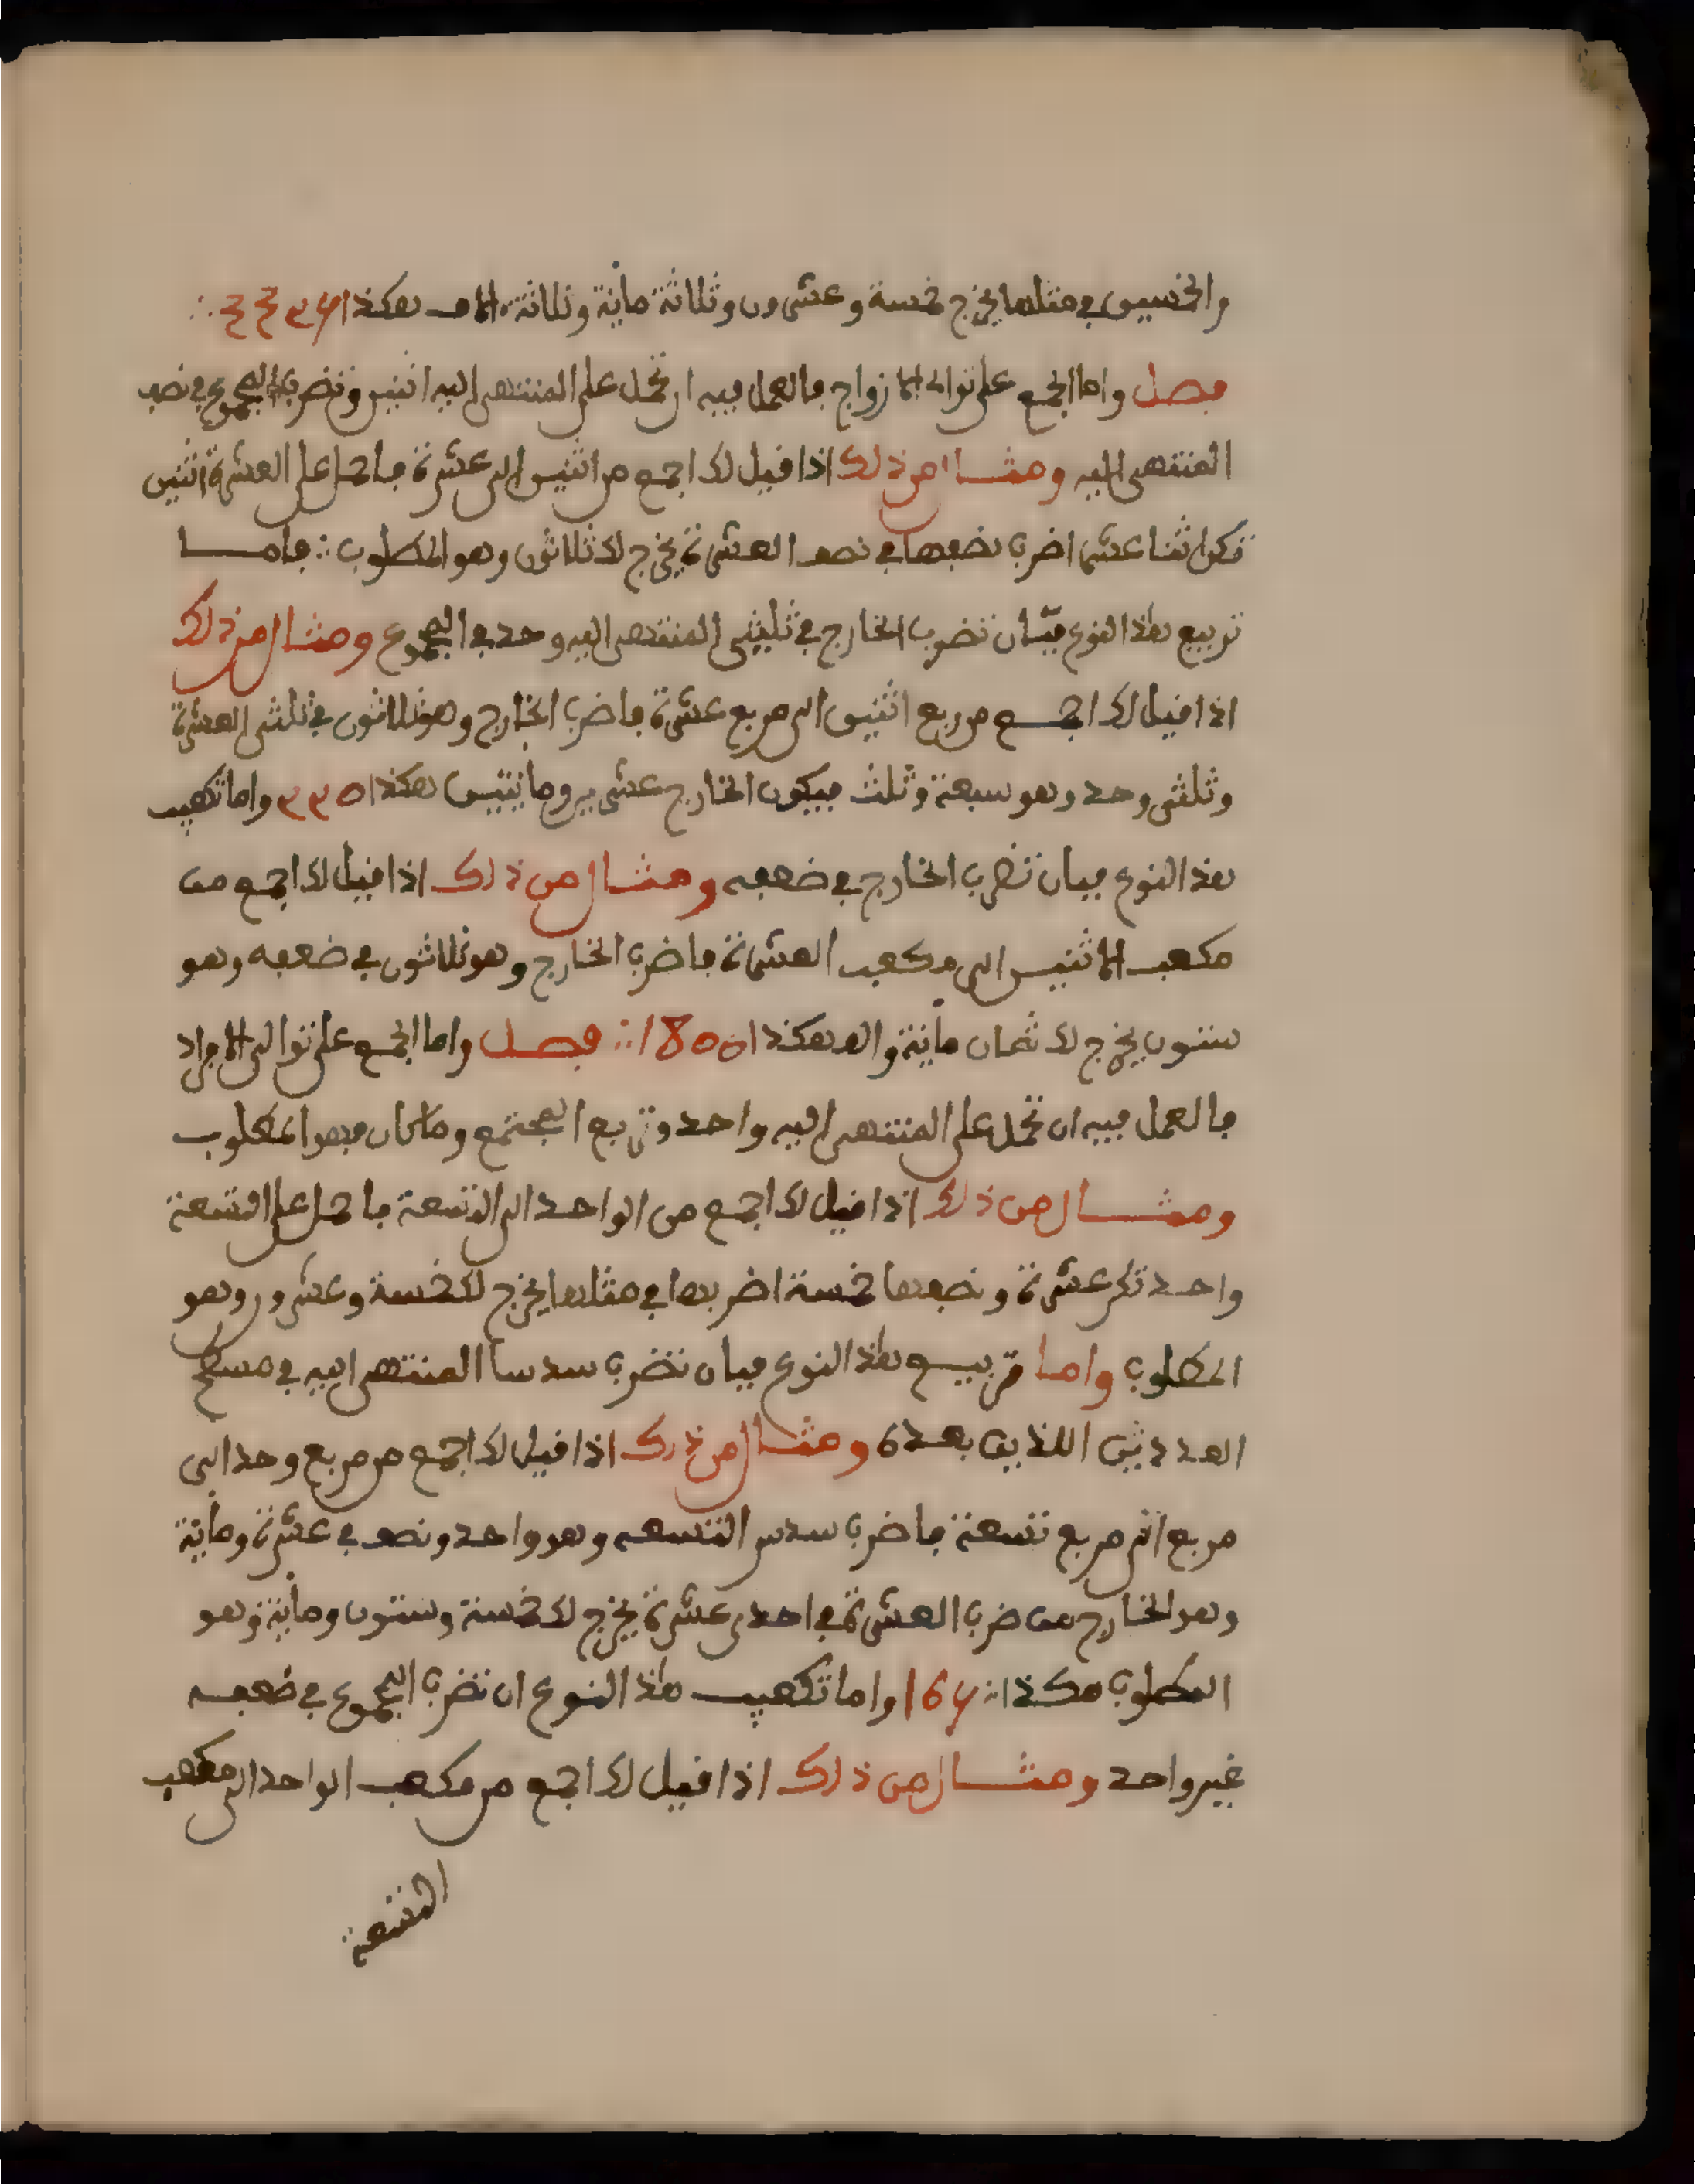 والخمسين في مثلها يخرج خمسة وعشرون وثلاثة مائة وثلاثة الاف هكذا ٣٣٢٥ ∴
فصل واما الجمع على توالى الازواج فالعمل فيه ان تحمل على المنتهى اليه اثنين وتضرب المجموع في نصف
المنتهى اليه ومثال من ذلك اذا قيل لك اجمع من اثنين الى عشرة فاحمل على العشرة اثنين
تكن اثنا عشر اضرب نصفها في نصف العشرة يخرج لك ثلاثون وهو المطلوب ∴ فاما
تربيع هذا النوع فبان تضرب الخارج في ثلثي المنتهى اليه وحد في المجموع ومثال من ذلك
اذا قيل لك اجمع من ربع اثنين الى مربع عشرة فاضرب الخارج وهو ثلاثون في ثلثي العشرة
وثلثي وحد وهو سبعة وثلث فيكون الخارج عشرين ومايتين هكذا ٢٢٥ واما تكعيب
هذ النوع فبان تضرب الخارج في ضعفه ومثال من ذلك اذا قيل لك اجمع من
مكعب الاثنين الى مكعب العشرة فاضرب الخارج وهو ثلاثون في ضعفه وهو
ستون يخرج لك ثمان مائة والف هكذا 1800 ∴ فصل واما الجمع على توالى الافراد
فالعمل فيه ان تحمل على المنتهى اليه واحد وتربع المجتمع وما كان فهو المطلوب
ومثال من ذلك اذا قيل لك اجمع من الواحد الى التسعة فاحمل على التسعة
واحد تكن عشرة ونصفها خمسة اضربها في مثلها يخرج لك خمسة وعشرون وهو
المطلوب واما تربيع هذا النوع فبان تضرب سدسا المنتهى اليه في مسطح
العددين اللذين بعده ومثال من ذلك اذا قيل لك اجمع من مربع وحد الى
مربع الى مربع تسعة فاضرب سدس التسعه وهو واحد ونصف في عشرة ومائة
وهو الخارج من ضرب العشرة في احدى عشرة يخرج لك خمسة وستون ومائة وهو
المطلوب هكذا ∴ 165 واما تكعيب هذا النوع ان تضرب المجموع في ضعفه
غير واحد ومثال من ذلك اذا قيل لك اجمع من مكعب الواحد الى مكعب
التسعة